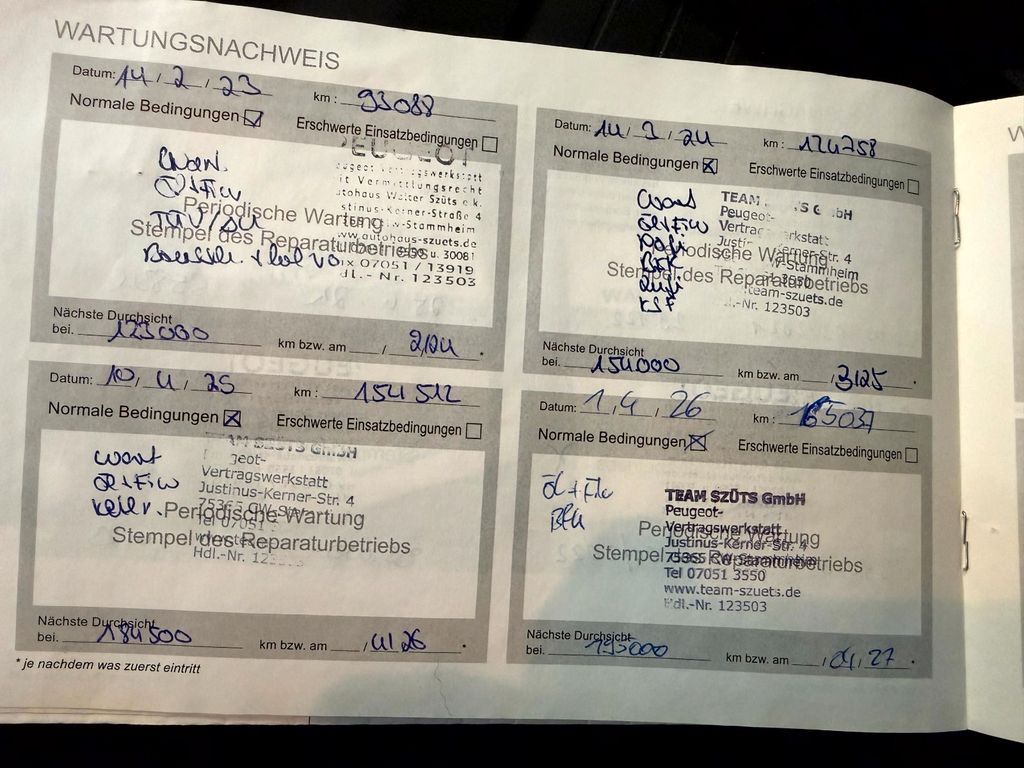 WARTUNGSNACHWEIS
Datum: 14 / 2 / 23 km : 93088
Normale Bedingungen Erschwerte Einsatzbedingungen
PEUGEOT
Wart.
Justinus-Kerner-Straße 4
CW-Stammheim
TÜV/AU
www.autohaus-szuets.de
07051 / 13919
Hdl.- Nr. 123503
Periodische Wartung
Stempel des Reparaturbetriebs
Nächste Durchsicht
bei. 123000 km bzw. am / 2/24 .
Datum: 14 / 3 / 24 km : 124758
Normale Bedingungen Erschwerte Einsatzbedingungen
Wart
Öl+Fiw
TEAM GmbH
Peugeot-
Vertragswerkstatt
Kerner-Str. 4
CW-Stammheim
team-szuets.de
Hdl.-Nr. 123503
Periodische Wartung
Stempel des Reparaturbetriebs
Nächste Durchsicht
bei. 154000 km bzw. am / 3/25 .
Datum: 10 / 4 / 25 km : 154512
Normale Bedingungen Erschwerte Einsatzbedingungen
Wart
Öl+Fiw
Keilr.
TEAM SZÜTS GmbH
Peugeot-
Vertragswerkstatt
Justinus-Kerner-Str. 4
75365 CW-Stammheim
Tel 07051
Hdl.-Nr. 123503
Periodische Wartung
Stempel des Reparaturbetriebs
Nächste Durchsicht
bei. 184500 km bzw. am / 4/26 .
Datum: 1 . 4 . 26 km : 165037
Normale Bedingungen Erschwerte Einsatzbedingungen
Öl + Filt
TEAM SZÜTS GmbH
Peugeot-
Vertragswerkstatt
Justinus-Kerner-Str. 4
75365 CW-Stammheim
Tel 07051 3550
www.team-szuets.de
Hdl.-Nr. 123503
Periodische Wartung
Stempel des Reparaturbetriebs
Nächste Durchsicht
bei. 195000 km bzw. am / 04 / 27 .
* je nachdem was zuerst eintritt